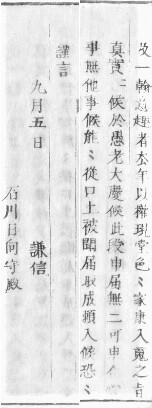 一翰
趣者去年以権現堂色〻家康入魂之旨
真実〻候於愚老大慶候此段申届無二可申
事無他事候能〻従口上被聞届取成頼入候恐〻
謹言
九月五日
謙信
石川日向守殿